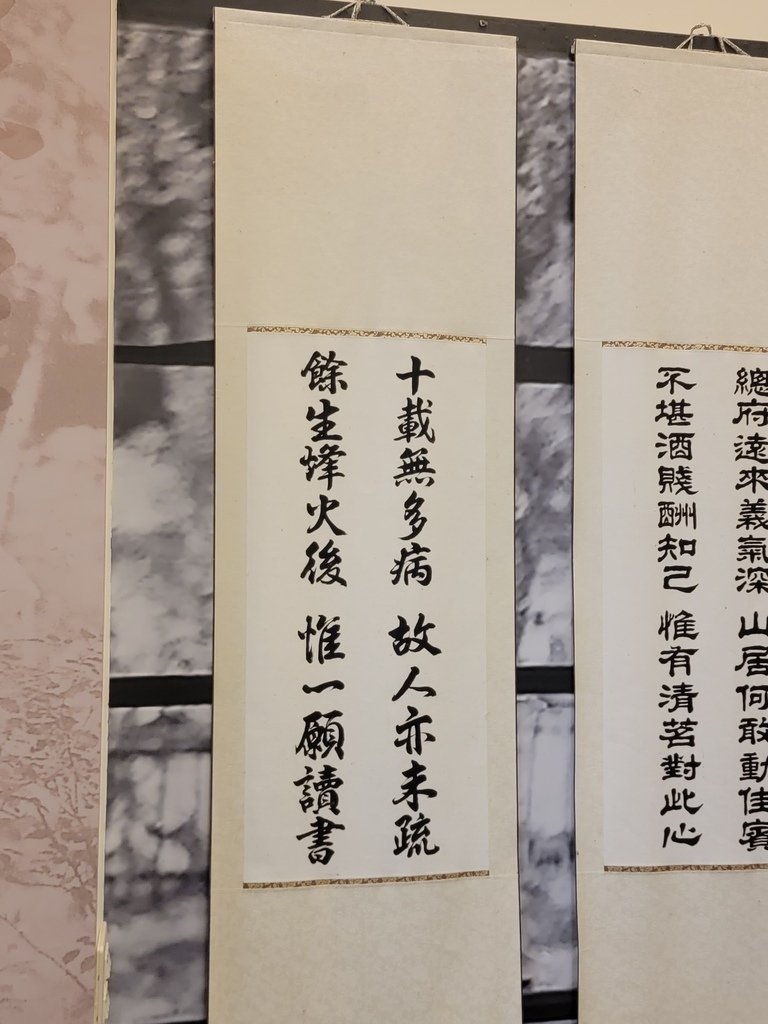 總府遠來義氣深 山居何敢動佳賓
不堪酒賤酬知己 惟有清茗對此心
十載無多病 故人亦未疏
餘生烽火後 惟一願讀書